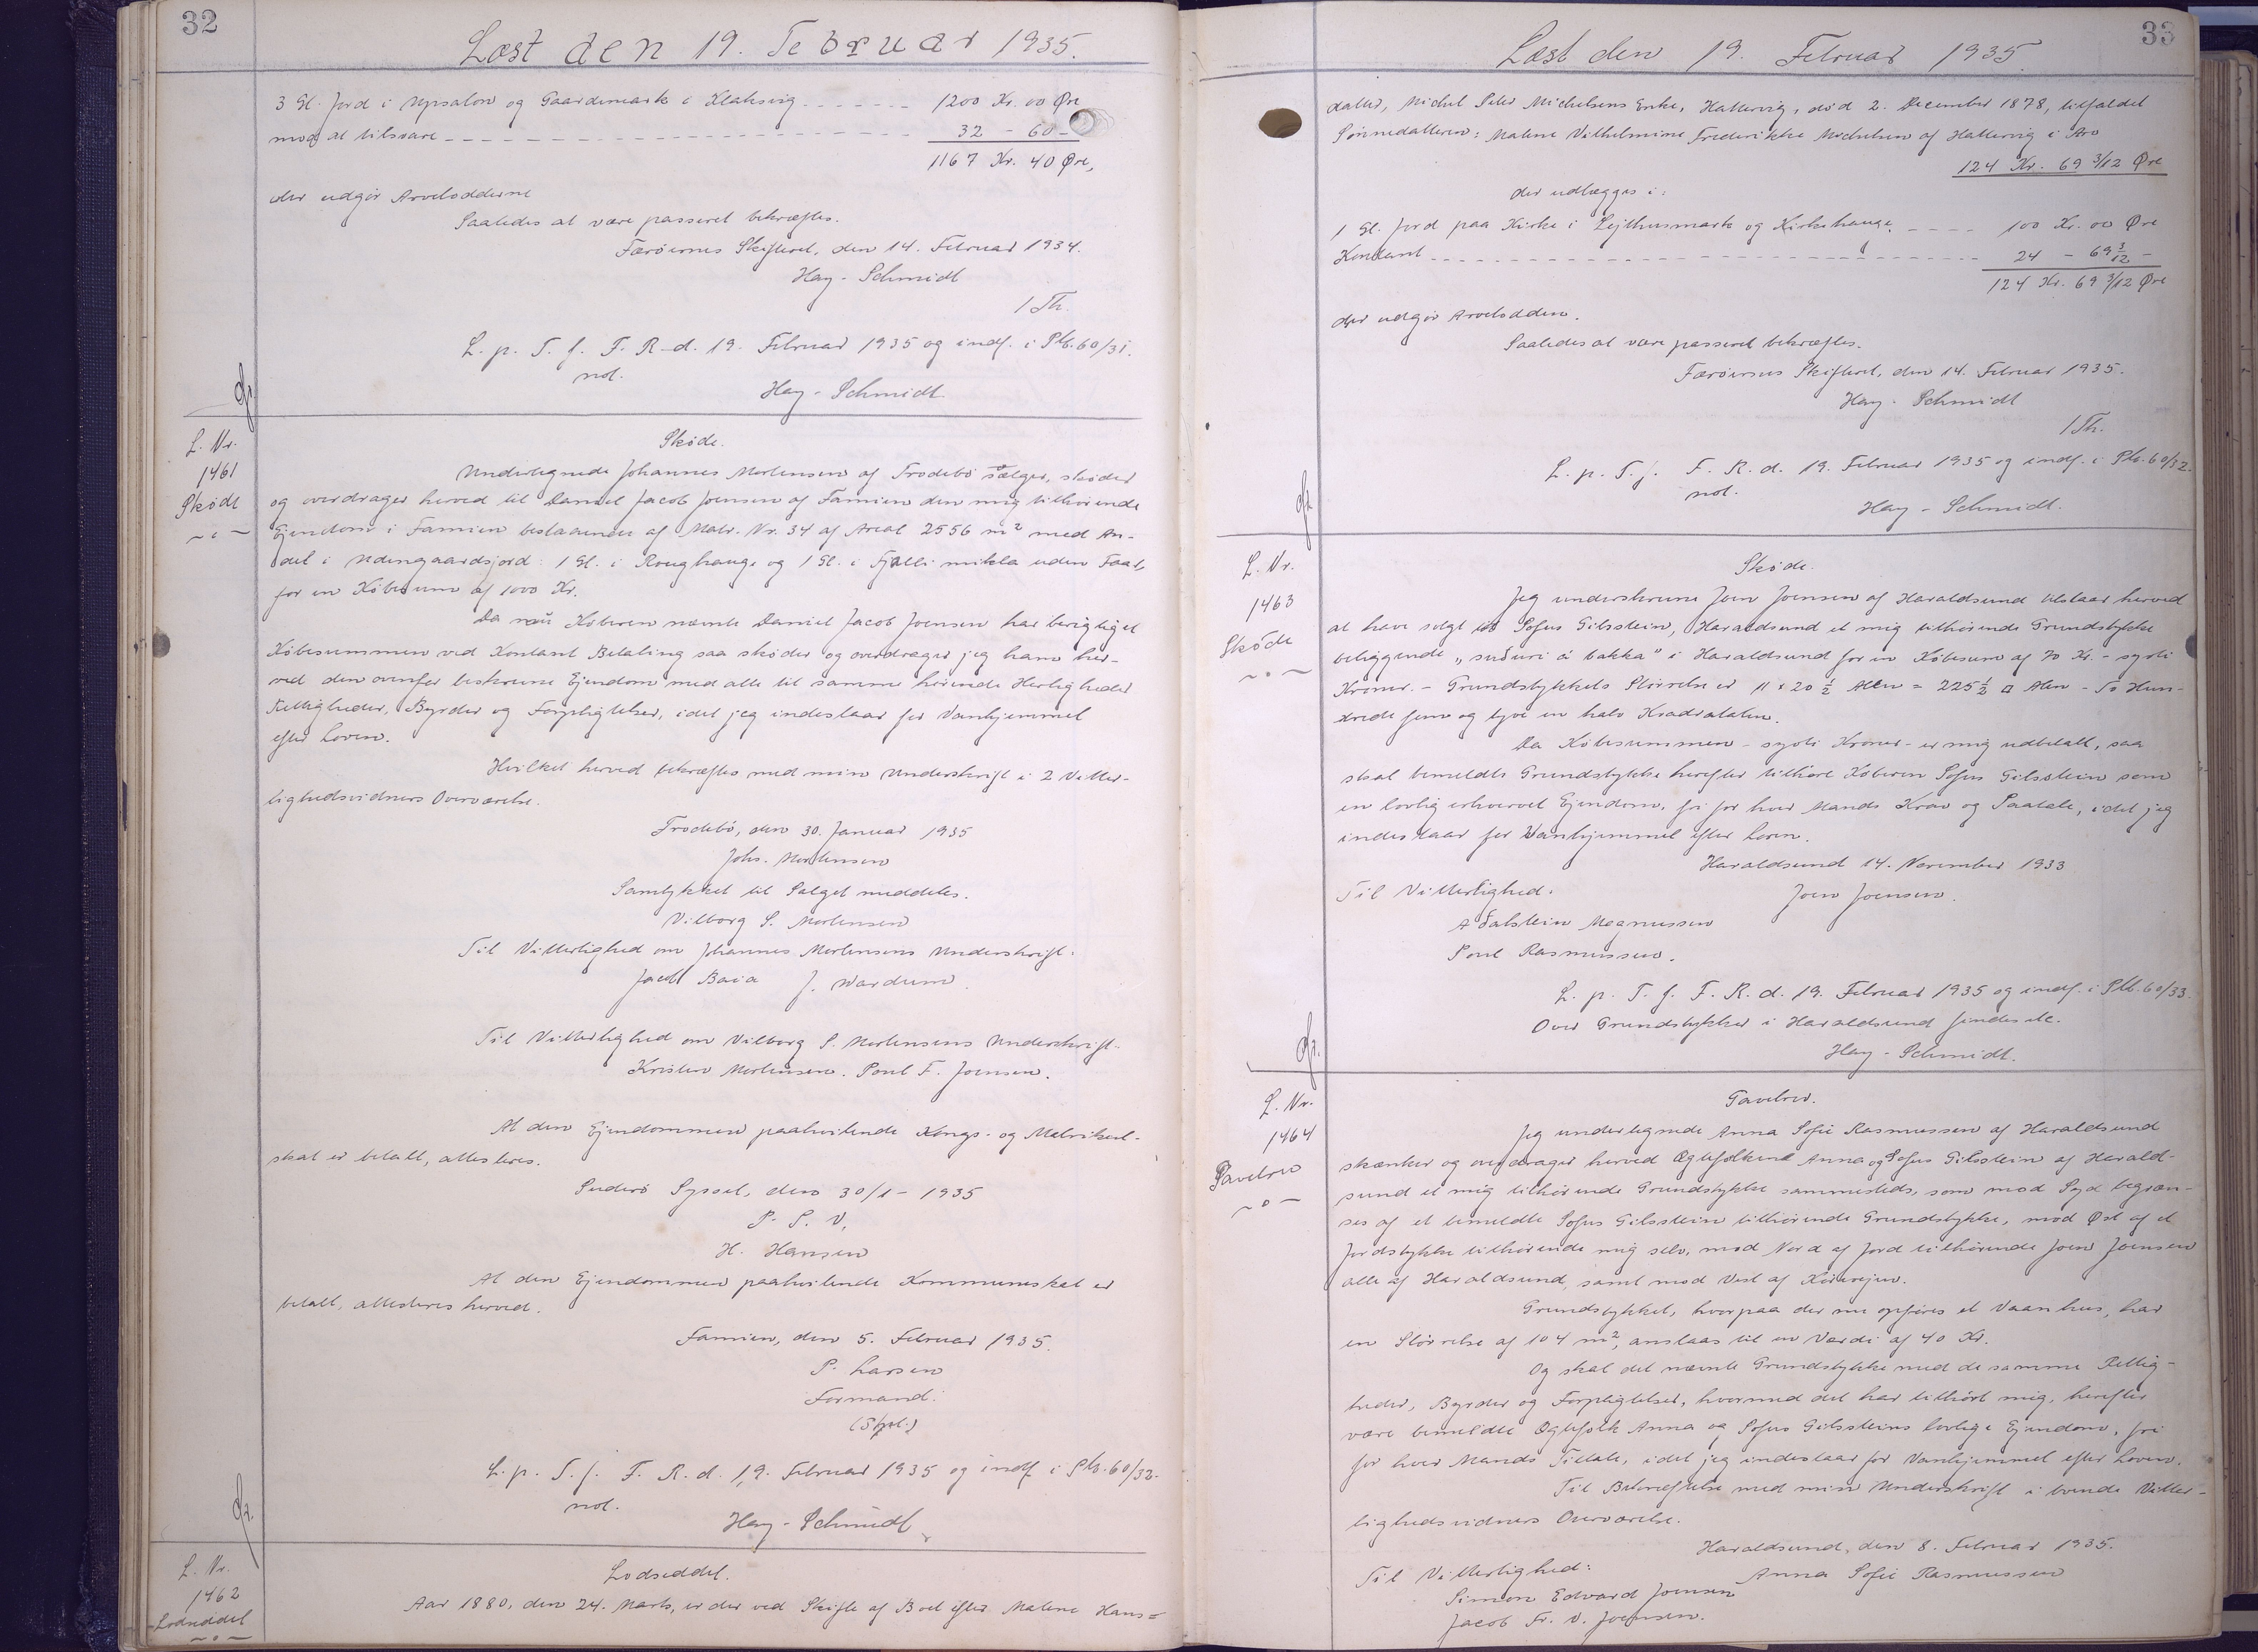 32
Læst den 19. Februar 1935.
3 Gl. Jord i Upsalon og Gaardemark i Klaksvig 1200 Kr. 00 Øre
mod at tilsvare 32 - 60 -
1167 Kr. 40 Øre,
der udgør Arvelodderne
Saaledes at være passeret bekræftes.
Færøernes Skifteret, den 14. Februar 1934.
Hay-Schmidt
/Th.
L. p. T. f. F. R. d. 19. Februar 1935 og indf. i Ptb. 60/31.
not.
Hay-Schmidt.
L. Nr.
1461
Skøde
Skøde.
Undertegnede Johannes Mortensen af Frodebø sælger, skøder
og overdrager herved til Daniel Jacob Joensen af Famien den mig tilhørende
Ejendom i Famien bestaaende af Matr. Nr. 34 af Areal 2556 m² med An-
del i Udengaardsjord: 1 Gl. i Roughauge og 1 Gl. i Fjalli mikla uden Faar,
for en Købesum af 1000 Kr.
Da nu Køberen nævnte Daniel Jacob Joensen har berigtiget
Købesummen ved Kontant Betaling saa skøder og overdrager jeg ham her-
ved den ovenfor beskrevne Ejendom med alle til samme hørende Herligheder
Rettigheder, Byrder og Forpligtelser, idet jeg indestaar for Vanhjemmel
efter Loven.
Hvilket herved bekræftes med min Underskrift i 2 Vitter-
lighedsvidners Overværelse.
Frodebø, den 30. Januar 1935
Johs. Mortensen
Samtykket til Salget meddeles.
Vilborg S. Mortensen
Til Vitterlighed om Johannes Mortensens Underskrift.
Jacob Baia J. Wardum.
Til Vitterlighed om Vilborg S. Mortensens Underskrift.
Kristen Mortensen. Poul F. Joensen.
At den Ejendommen paahvilende Kongs- og Matrikul-
skat er betalt, attesteres.
Suderø Syssel, den 30/1 - 1935
P. S. V.
H. Hansen
At den Ejendommen paahvilende Kommuneskat er
betalt, attesteres herved.
Famien, den 5. Februar 1935.
P. Larsen
Formand.
L. p. T. f. F. R. d. 19. Februar 1935 og indf. i Ptb. 60/32.
not.
Hay-Schmidt
L. Nr.
1462
Lodseddel
Lodseddel.
Aar 1880, den 24. Marts, er der ved Skifte af Boet efter Malene Hans=
33
Læst den 19. Februar 1935.
datter, Michel Peter Michelsens Enke, Hattervig, død 2. December 1878, tilfaldet
Sønnedatteren: Malene Vilhelmine Frederikke Michelsen af Hattervig i Arv
124 Kr. 69 3/12 Øre
der udlægges i:
1 Gl. Jord paa Kirke i Lejthusmark og Kirkehauge 100 Kr. 00 Øre
Kontant 24 - 69 3/12 -
124 Kr. 69 3/12 Øre
der udgør Arvelodden.
Saaledes at være passeret bekræftes.
Færøernes Skifteret, den 14. Februar 1935.
Hay-Schmidt
/Th.
L. p. T. f. F. R. d. 19. Februar 1935 og indf. i Ptb. 60/32.
not.
Hay-Schmidt.
L. Nr.
1463
Skøde
Skøde.
Jeg underskrevne Joen Joensen af Haraldsund tilstaar herved
at have solgt til Sofus Gilsstein, Haraldsund et mig tilhørende Grundstykke
beliggende "suðuri á bakka" i Haraldsund for en Købesum af 70 Kr. - systi
Kroner. - Grundstykkets Størrelse er 11 x 20 ½ Alen = 225 ½ □ Alen - To Hun-
drede fem og tyve en halv Kvadratalen.
Da Købesummen - systi Kroner - er mig udbetalt, saa
skal bemeldte Grundstykke herefter tilhøre Køberen Sofus Gilsstein som
en lovlig erhvervet Ejendom, fri for hver Mands Krav og Paatale, idet jeg
indestaar for Vanhjemmel efter Loven.
Haraldsund 14. November 1933
Til Vitterlighed. Joen Joensen.
Aðalstein Magnussen
Poul Rasmussen.
L. p. T. f. F. R. d. 19. Februar 1935 og indf. i Ptb. 60/33.
Over Grundstykker i Haraldsund findes etc.
Hay-Schmidt.
L. Nr.
1464
Gavebrev
Gavebrev.
Jeg undertegnede Anna Sofie Rasmussen af Haraldsund
skænker og overdrager herved Ægtefolkene Anna og Sofus Gilsstein af Harald-
sund et mig tilhørende Grundstykke sammesteds, som mod Syd begræn-
ses af et bemeldte Sofus Gilsstein tilhørende Grundstykke, mod Øst af et
Jordstykke tilhørende mig selv, mod Nord af Jord tilhørende Joen Joensen
alle af Haraldsund, samt mod Vest af Kørevejen.
Grundstykket, hvorpaa der nu opføres et Vaanhus, har
en Størrelse af 104 m², anslaas til en Værdi af 40 Kr.
Og skal det nævnte Grundstykke med de samme Rettig-
heder, Byrder og Forpligtelser, hvormed det har tilhørt mig, herefter
være bemeldte Ægtefolk Anna og Sofus Gilssteins lovlige Ejendom, fri
for hver Mands Tiltale, idet jeg indestaar for Vanhjemmel efter Loven.
Til Bekræftelse med min Underskrift i tvende Vitter-
lighedsvidners Overværelse.
Haraldsund, den 8. Februar 1935.
Til Vitterlighed: Anna Sofie Rasmussen
Simon Edvard Joensen
Jacob Fr. V. Joensen.